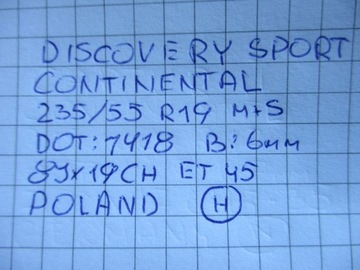 DISCOVERY SPORT
CONTINENTAL
235/55 R19 M+S
DOT: 1418 B: 6mm
8Jx19CH ET 45
POLAND H